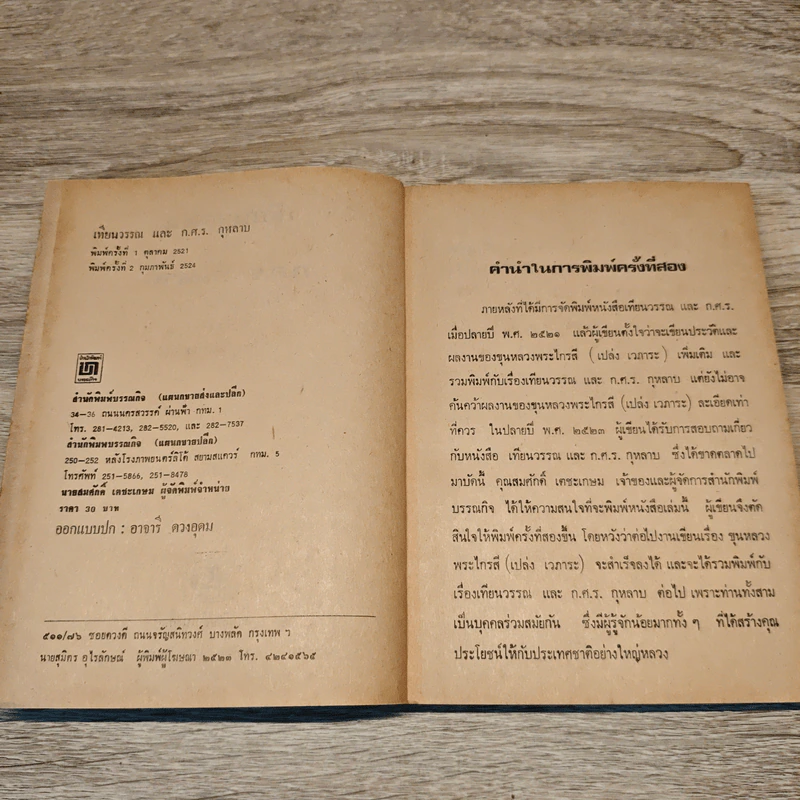 เทียนวรรณ และ ก.ศ.ร. กุหลาบ
พิมพ์ครั้งที่ 1 ตุลาคม 2521
พิมพ์ครั้งที่ 2 กุมภาพันธ์ 2524
สำนักพิมพ์
บรรณกิจ
สำนักพิมพ์บรรณกิจ (แผนกขายส่งและปลีก)
34-36 ถนนนครสวรรค์ ผ่านฟ้า กทม. 1
โทร. 281-4213, 282-5520, และ 282-7537
สำนักพิมพบรรณกิจ (แผนกขายปลีก)
250-252 หลังโรงภาพยนตร์ลิโด้ สยามสแควร์ กทม. 5
โทรศัพท์ 251-5866, 251-8478
นายสมศักดิ์ เตชะเกษม ผู้จัดพิมพ์จำหน่าย
ราคา 30 บาท
ออกแบบปก : อาจารี ดวงอุดม
๕๑๑/๗๖ ซอยดวงดี ถนนจรัญสนิทวงศ์ บางพลัด กรุงเทพ ฯ
นายสุมิตร อุไรลักษณ์ ผู้พิมพ์ผู้โฆษณา ๒๕๒๓ โทร. ๔๒๔๑๕๖๕
คำนำในการพิมพ์ครั้งที่สอง
ภายหลังที่ได้มีการจัดพิมพ์หนังสือเทียนวรรณ และ ก.ศ.ร.
เมื่อปลายปี พ.ศ. ๒๕๒๑ แล้วผู้เขียนตั้งใจว่าจะเขียนประวัติและ
ผลงานของขุนหลวงพระไกรสี (เปล่ง เวภาระ) เพิ่มเติม และ
รวมพิมพ์กับเรื่องเทียนวรรณ และ ก.ศ.ร. กุหลาบ แต่ยังไม่อาจ
ค้นคว้าผลงานของขุนหลวงพระไกรสี (เปล่ง เวภาระ) ละเอียดเท่า
ที่ควร ในปลายปี พ.ศ. ๒๕๒๓ ผู้เขียนได้รับการสอบถามเกี่ยว
กับหนังสือ เทียนวรรณ และ ก.ศ.ร. กุหลาบ ซึ่งได้ขาดตลาดไป
มาบัดนี้ คุณสมศักดิ์ เตชะเกษม เจ้าของและผู้จัดการสำนักพิมพ์
บรรณกิจ ได้ให้ความสนใจที่จะพิมพ์หนังสือเล่มนี้ ผู้เขียนจึงตัด
สินใจให้พิมพ์ครั้งที่สองขึ้น โดยหวังว่าต่อไปงานเขียนเรื่อง ขุนหลวง
พระไกรสี (เปล่ง เวภาระ) จะสำเร็จลงได้ และจะได้รวมพิมพ์กับ
เรื่องเทียนวรรณ และ ก.ศ.ร. กุหลาบ ต่อไป เพราะท่านทั้งสาม
เป็นบุคคลร่วมสมัยกัน ซึ่งมีผู้รู้จักน้อยมากทั้ง ๆ ที่ได้สร้างคุณ
ประโยชน์ให้กับประเทศชาติอย่างใหญ่หลวง